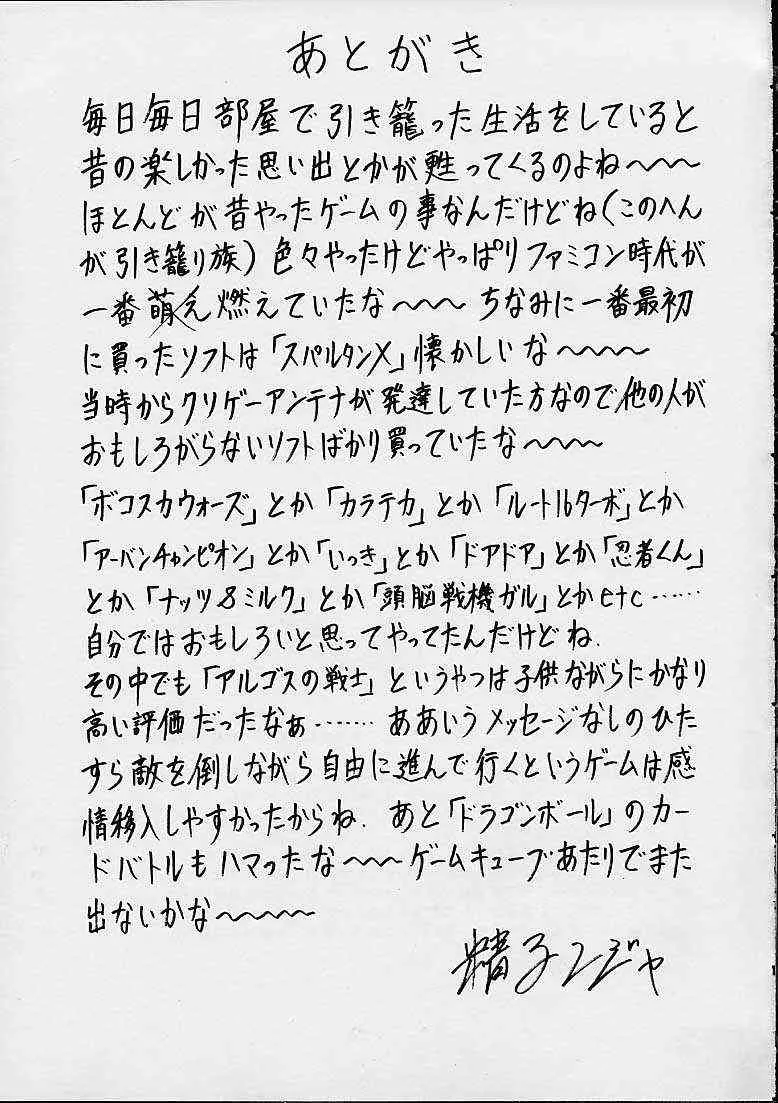 あとがき
毎日毎日部屋で引き籠った生活をしていると
昔の楽しかった思い出とかが甦ってくるのよね〜〜〜
ほとんどが昔やったゲームの事なんだけどね(このへん
が引き籠り族)色々やったけどやっぱりファミコン時代が
一番萌え燃えていたな〜〜〜ちなみに一番最初
に買ったソフトは「スパルタンX」懐かしいな〜〜〜〜
当時からクソゲーアンテナが発達していた方なので他の人が
おもしろがらないソフトばかり買っていたな〜〜〜
「ボコスカウォーズ」とか「カラテカ」とか「ルート16ターボ」とか
「アーバンチャンピオン」とか「いっき」とか「ドアドア」とか「忍者くん」
とか「ナッツ&ミルク」とか「頭脳戦機ガル」とかetc……
自分ではおもしろいと思ってやってたんだけどね.
その中でも「アルゴスの戦士」というやつは子供ながらにかなり
高い評価だったなぁ…… ああいうメッセージなしのひた
すら敵を倒しながら自由に進んで行くというゲームは感
情移入しやすかったからね. あと「ドラゴンボール」のカー
ドバトルもハマったな〜〜〜ゲームキューブあたりでまた
出ないかな〜〜〜〜
精子ンジャ